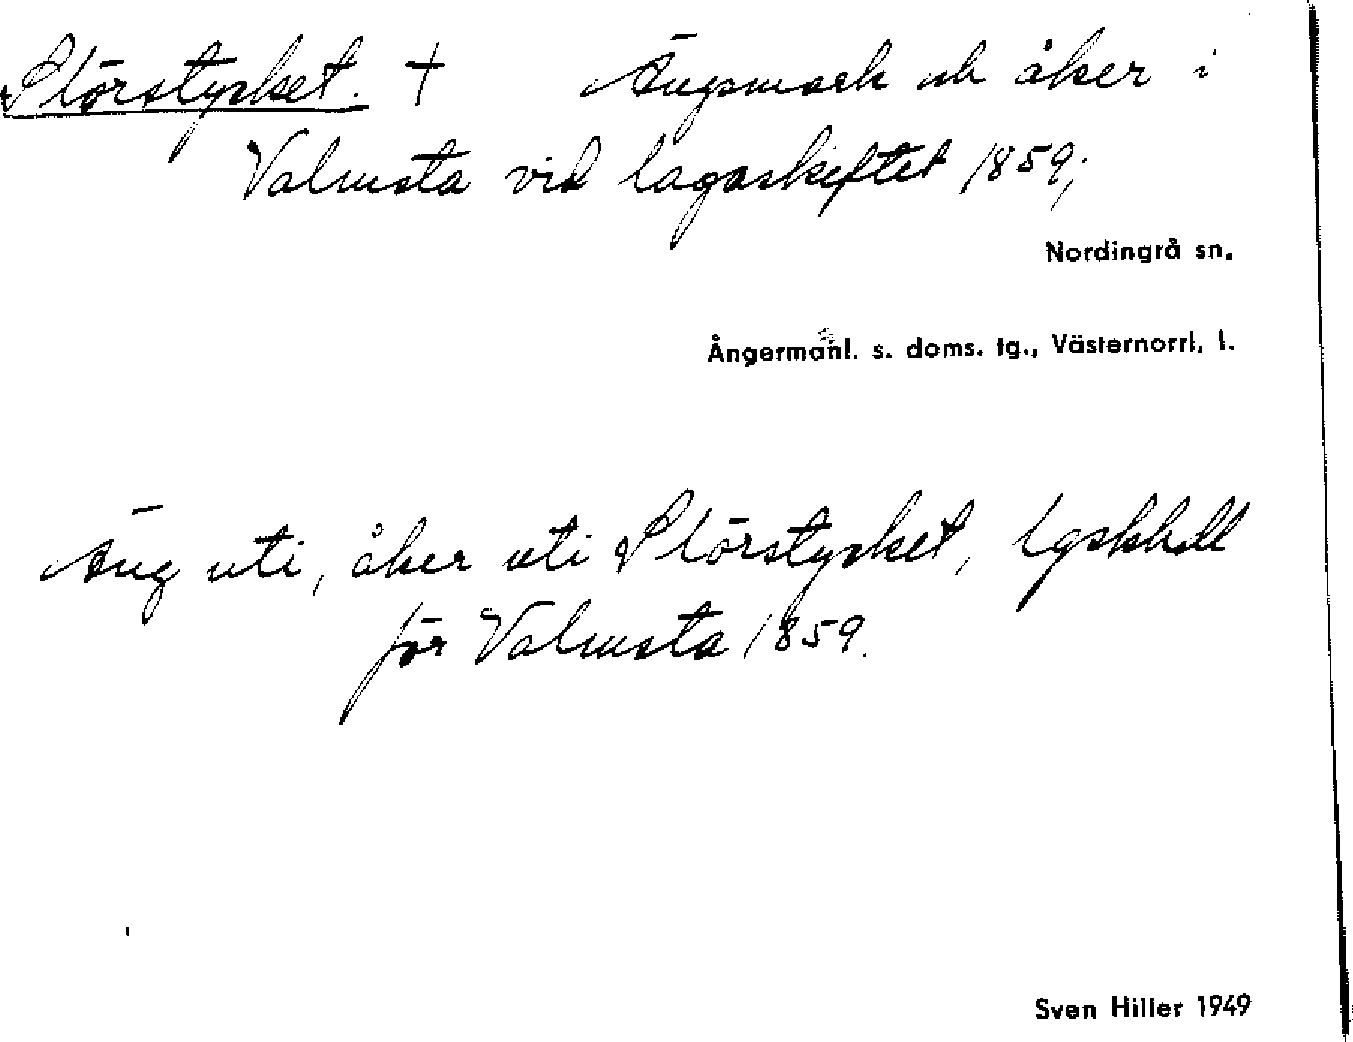 Störstycket. † Ängsmark och åker i
Valmsta vid lagaskiftet 1859;
Nordingrå sn.
Ångermanl. s. doms. tg., Västernorrl. l.
Äng uti, åker uti Störstycket, Lgskhdl
för Valmsta 1859.
Sven Hiller 1949